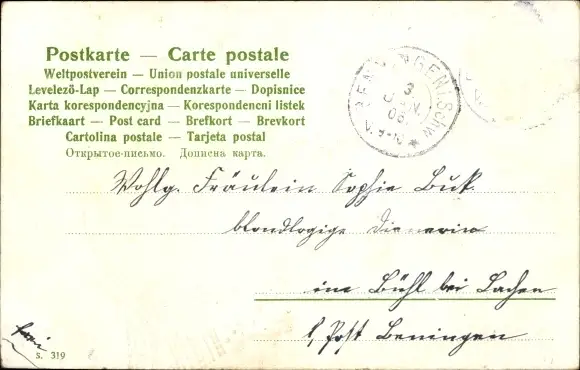 Postkarte — Carte postale
Weltpostverein — Union postale universelle
Levelező-Lap — Correspondenzkarte — Dopisnice
Karta korespondencyjna — Korespondencni listek
Briefkaart — Post card — Brefkort — Brevkort
Cartolina postale — Tarjeta postal
Открытое-письмо. Дописна карта.
BENNINGEN (Schw.
3
JAN.
06
V. 9-10
Wohlg. Fräulein Sophie Buk
blondlogige
im Bühl bei Lachen
Post Beningen
S. 319